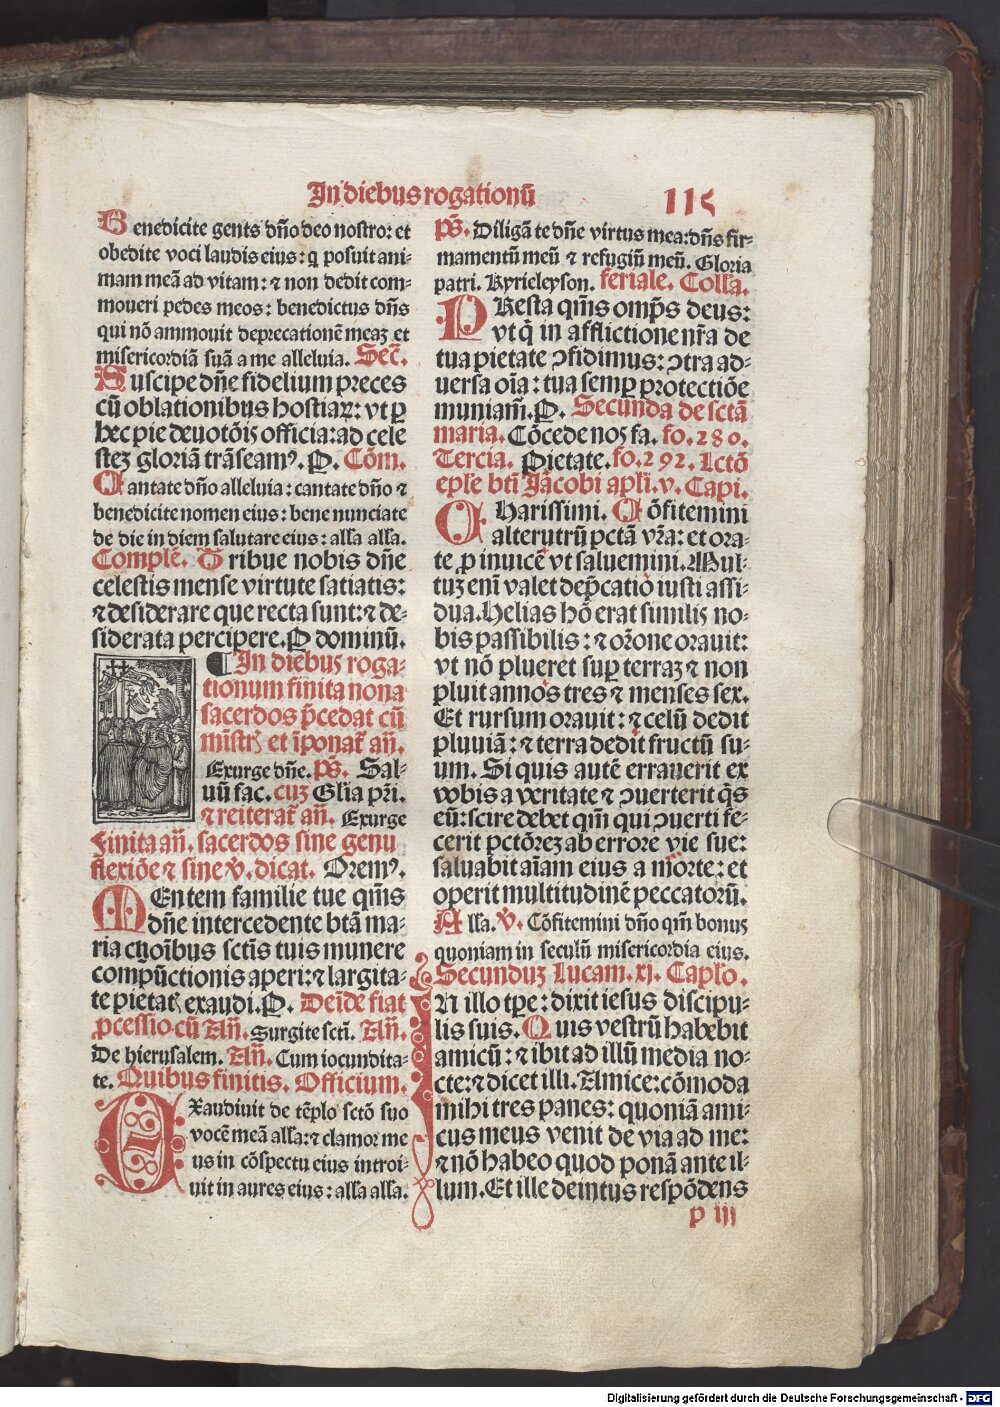 In diebus rogationũ
115
Benedicite gents dño deo nostro: et
obedite voci laudis eius: q posuit ani-
mam meã ad vitam: ⁊ non dedit com-
moueri pedes meos: benedictus dñs
qui nõ ammouit deprecationẽ meaꝫ et
misericordiã suã a me alleluia. Secẽ.
Suscipe dñe fidelium preces
cũ oblationibus hostiaꝝ: vt ꝑ
hec pie deuotõis officia: ad cele
steꝫ gloriã trãseamꝰ. P. Cõm.
Cantate dño alleluia: cantate dño ⁊
benedicite nomen eius: bene nunciate
de die in diem salutare eius: alĺa alĺa.
Complẽ. Tribue nobis dñe
celestis mense virtute satiatis:
⁊ desiderare que recta sunt: ⁊ de-
siderata percipere. P dominũ.
¶In diebus roga-
tionum finita nona
sacerdos p̃cedat cũ
mĩstr̃ et ĩponat̃ añ.
Exurge dñe. p̃s. Sal-
uũ fac. cuꝫ Glia pr̃i.
⁊ reiterat̃ añ. Exurge
Finita añ. sacerdos sine genu
flexiõe ⁊ sine v̊. dicat. Oremꝰ.
MEntem familie tue qm̃s
dñe intercedente btã ma-
ria cũ oĩbus sctĩs tuis munere
compũctionis aperi: ⁊ largita-
te pietatꝭ exaudi. P. Deĩde fiat
ꝓcessio cũ Añ. Surgite sctĩ. Añ.
De hierusalem. Añ. Cum iocundita-
te. Quibus finitis. Officium.
EXaudiuit de tẽplo sctõ suo
vocẽ meã alĺa: ⁊ clamor me
us in cõspectu eius introi-
uit in aures eius: alĺa alĺa.
p̃s. Diligã te dñe virtus mea: dñs fir-
mamentũ meũ ⁊ refugiũ meũ. Gloria
patri. Kyrieleyson. feriale. Colĺa.
PResta qm̃s omp̃s deus:
vt q̃ in afflictione nr̃a de
tua pietate ꝯfidimus: ꝯtra ad-
uersa oĩa: tua semꝑ protectiõe
muniam̃. P. Secunda de sctã
maria. Cõcede nos fa. fo. 280.
Tercia. Pietate. fo. 292. Lctõ
epĺe btĩ Jacobi apĺi. v. Capi.
CHarissimi. Cõfitemini
alterutrũ pctã vr̃a: et ora-
te ꝓ inuicẽ vt saluemini. Mul-
tuꝫ enĩ valet dep̃catio iusti assi-
dua. Helias hõ erat similis no-
bis passibilis: ⁊ or̃one orauit:
vt nõ plueret suꝑ terraꝫ ⁊ non
pluit annos tres ⁊ menses sex.
Et rursum orauit: ⁊ celũ dedit
pluuiã: ⁊ terra dedit fructũ su-
um. Si quis autẽ errauerit ex
vobis a veritate ⁊ ꝯuerterit q̃s
eũ: scire debet qm̃ qui ꝯuerti fe-
cerit pctõreꝫ ab errore vie sue:
saluabit aĩam eius a morte: et
operit multitudinẽ peccatorũ.
Alĺa. v̊. Cõfitemini dño qm̃ bonus
quoniam in seculũ misericordia eius.
Secunduꝫ Lucam. xj. Capĺo.
IN illo tp̃e: dixit iesus discipu-
lis suis. Quis vestrũ habebit
amicũ: ⁊ ibit ad illũ media no-
cte: ⁊ dicet illi. Amice: cõmoda
mihi tres panes: quoniã ami-
cus meus venit de via ad me:
⁊ nõ habeo quod ponã ante il-
lum. Et ille deintus respõdens
p iij
Digitalisierung gefördert durch die Deutsche Forschungsgemeinschaft - DFG